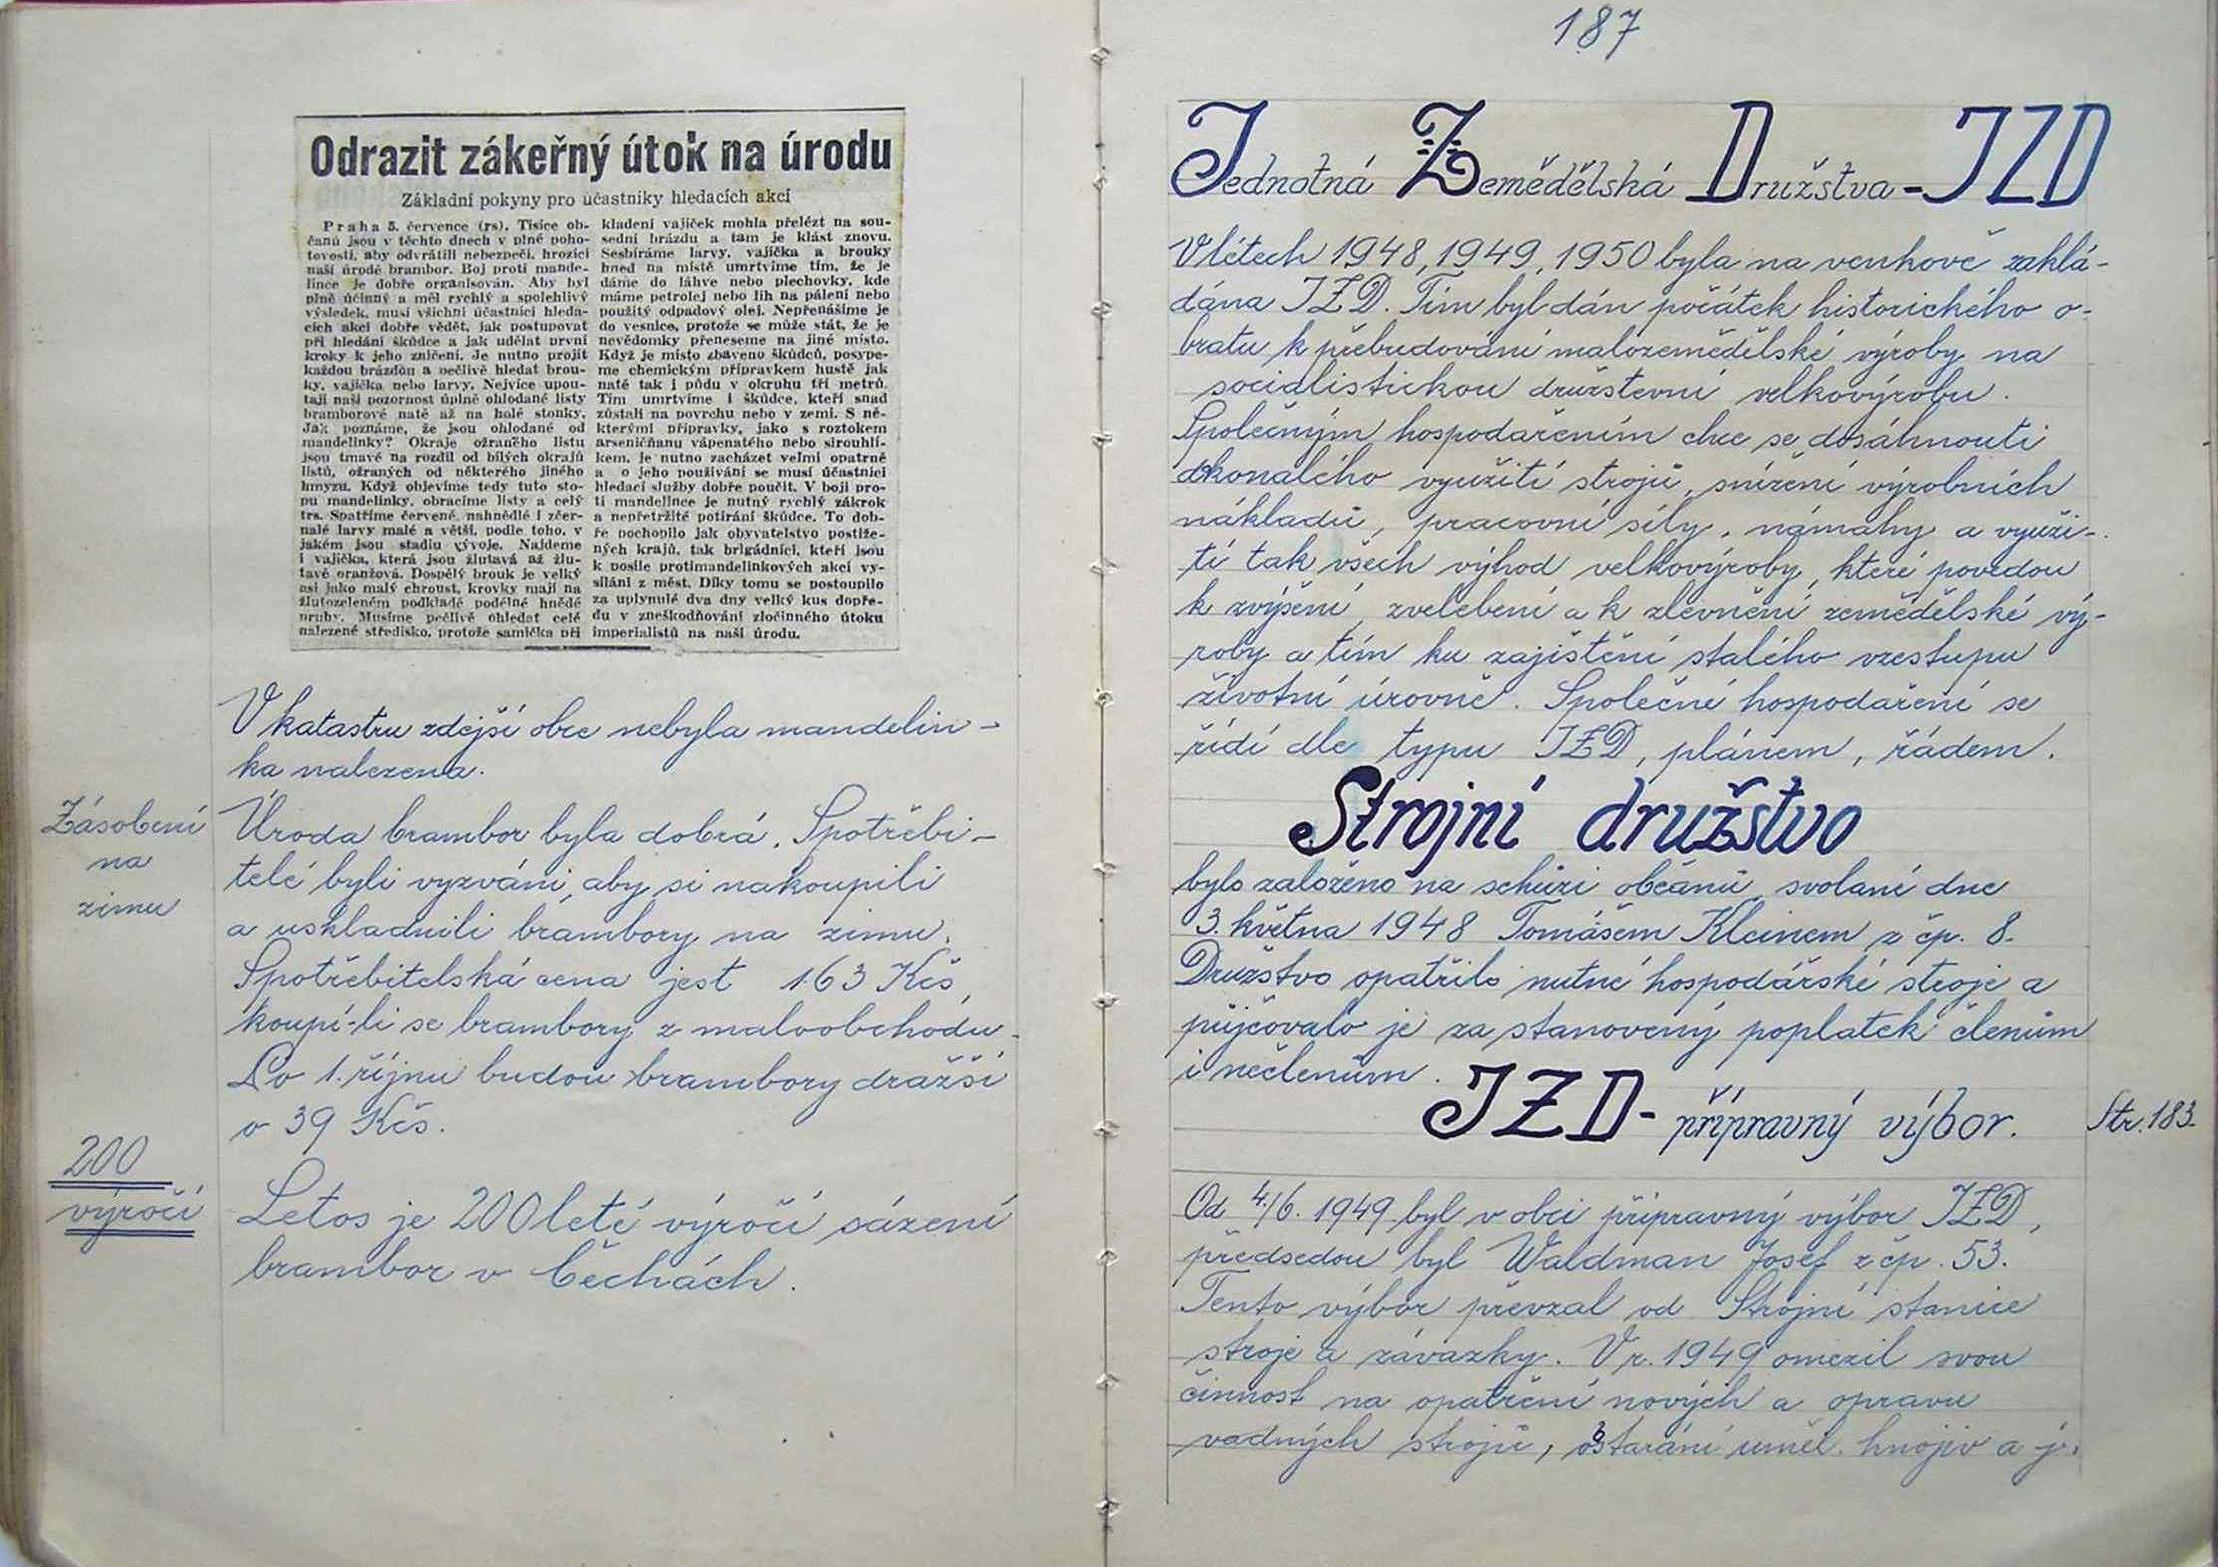 Odrazit zákeřný útok na úrodu
Základní pokyny pro účastníky hledacích akcí
Praha 5. července (rs). Tisíce ob-
čanů jsou v těchto dnech v plné poho-
tovosti, aby odvrátili nebezpečí, hrozící
naší úrodě brambor. Boj proti mande-
lince je dobře organisován. Aby byl
plně účinný a měl rychlý a spolehlivý
výsledek, musí všichni účastníci hleda-
cích akcí dobře vědět, jak postupovat
při hledání škůdce a jak udělat první
kroky k jeho zničení. Je nutno projít
každou brázdou a pečlivě hledat brou-
ky, vajíčka nebo larvy. Nejvíce upou-
tají naši pozornost úplně ohlodané listy
bramborové natě až na holé stonky.
Jak poznáme, že jsou ohlodané od
mandelinky? Okraje ožraného listu
jsou tmavé na rozdíl od bílých okrajů
listů, ožraných od některého jiného
hmyzu. Když objevíme tedy tuto sto-
pu mandelinky, obracíme listy a celý
trs. Spatříme červené, nahnědlé i zčer-
nalé larvy malé a větší, podle toho, v
jakém jsou stadiu vývoje. Najdeme
i vajíčka, která jsou žlutavá až žlu-
tavě oranžová. Dospělý brouk je velký
asi jako malý chroust, krovky mají na
žlutozeleném podkladě podélné hnědé
pruhy. Musíme pečlivě ohledat celé
nalezené středisko, protože samička při
kladení vajíček mohla přelézt na sou-
sední brázdu a tam je klást znovu.
Sesbíráme larvy, vajíčka a brouky
hned na místě umrtvíme tím, že je
dáme do láhve nebo plechovky, kde
máme petrolej nebo líh na pálení nebo
použitý odpadový olej. Nepřenášíme je
do vesnice, protože se může stát, že je
nevědomky přeneseme na jiné místo.
Když je místo zbaveno škůdců, posype-
me chemickým přípravkem hustě jak
natě tak i půdu v okruhu tří metrů.
Tím umrtvíme i škůdce, kteří snad
zůstali na povrchu nebo v zemi. S ně-
kterými přípravky, jako s roztokem
arseničňanu vápenatého nebo sirouhlí-
kem, je nutno zacházet velmi opatrně
a o jeho používání se musí účastníci
hledací služby dobře poučit. V boji pro-
ti mandelince je nutný rychlý zákrok
a nepřetržité potírání škůdce. To dob-
ře pochopilo jak obyvatelstvo postiže-
ných krajů, tak brigádníci, kteří jsou
k posile protimandelinkových akcí vy-
síláni z měst. Díky tomu se postoupilo
za uplynulé dva dny velký kus dopře-
du v zneškodňování zločinného útoku
imperialistů na naši úrodu.
V katastru zdejší obce nebyla mandelin-
ka nalezena.
Zásobení
na
zimu
Úroda brambor byla dobrá. Spotřebi-
telé byli vyzváni, aby si nakoupili
a uskladnili brambory na zimu.
Spotřebitelská cena jest 163 Kčs,
koupí-li se brambory z maloobchodu.
Po 1. říjnu budou brambory dražší
o 39 Kčs.
200
výročí
Letos je 200leté výročí sázení
brambor v Čechách.
187
Jednotná Zemědělská Družstva - JZD
V létech 1948, 1949, 1950 byla na venkově zaklá-
dána JZD. Tím byl dán počátek historického o-
bratu k přebudování malozemědělské výroby na
socialistickou družstevní velkovýrobu.
Společným hospodařením chce se dosáhnouti
dokonalého využití strojů, snížení výrobních
nákladů, pracovní síly, námahy a využi-
tí tak všech výhod velkovýroby, které povedou
k zvýšení, zvelebení a k zlevnění zemědělské vý-
roby a tím ku zajištění stálého vzestupu
životní úrovně. Společné hospodaření se
řídí dle typu JZD, plánem, řádem.
Strojní družstvo
bylo založeno na schůzi občanů svolané dne
3. května 1948 Tomášem Kleinem z čp. 8.
Družstvo opatřilo nutné hospodářské stroje a
půjčovalo je za stanovený poplatek členům
i nečlenům.
JZD - přípravný výbor.
Str. 183.
Od 4./6. 1949 byl v obci přípravný výbor JZD,
předsedou byl Waldman Josef z čp. 53.
Tento výbor převzal od Strojní stanice
stroje a závazky. V r. 1949 omezil svou
činnost na opatření nových a opravu
vadných strojů, obstarání uměl. hnojiv a j.